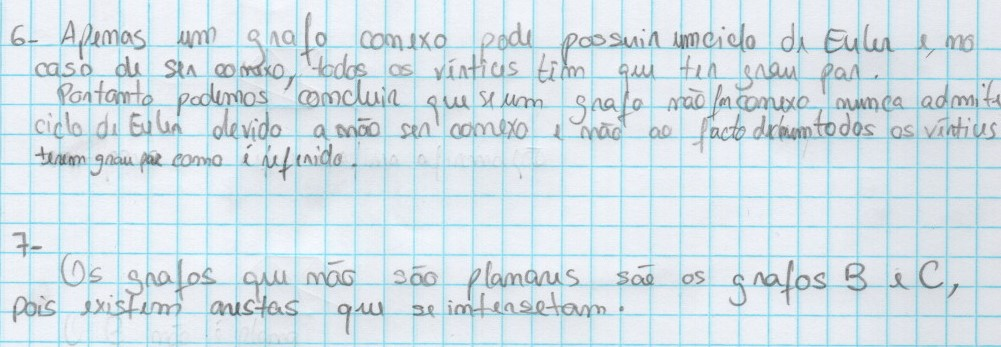 6- Apenas um grafo conexo pode possuir um ciclo de Euler e, no
caso de ser conexo, todos os vértices têm que ter grau par.
Portanto podemos concluir que se um grafo não for conexo, nunca admite
ciclo de Euler devido a não ser conexo e não ao facto de nem todos os vértices
terem grau par como é referido.
7-
Os grafos que não são planares são os grafos B e C,
pois existem arestas que se intersetam.